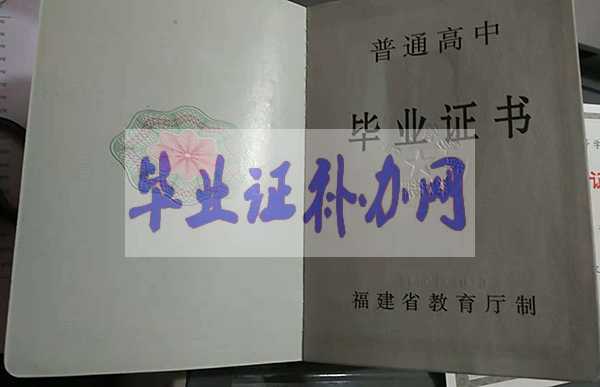 普通高中
毕业证书
毕业证补办网
福建省教育厅制
证